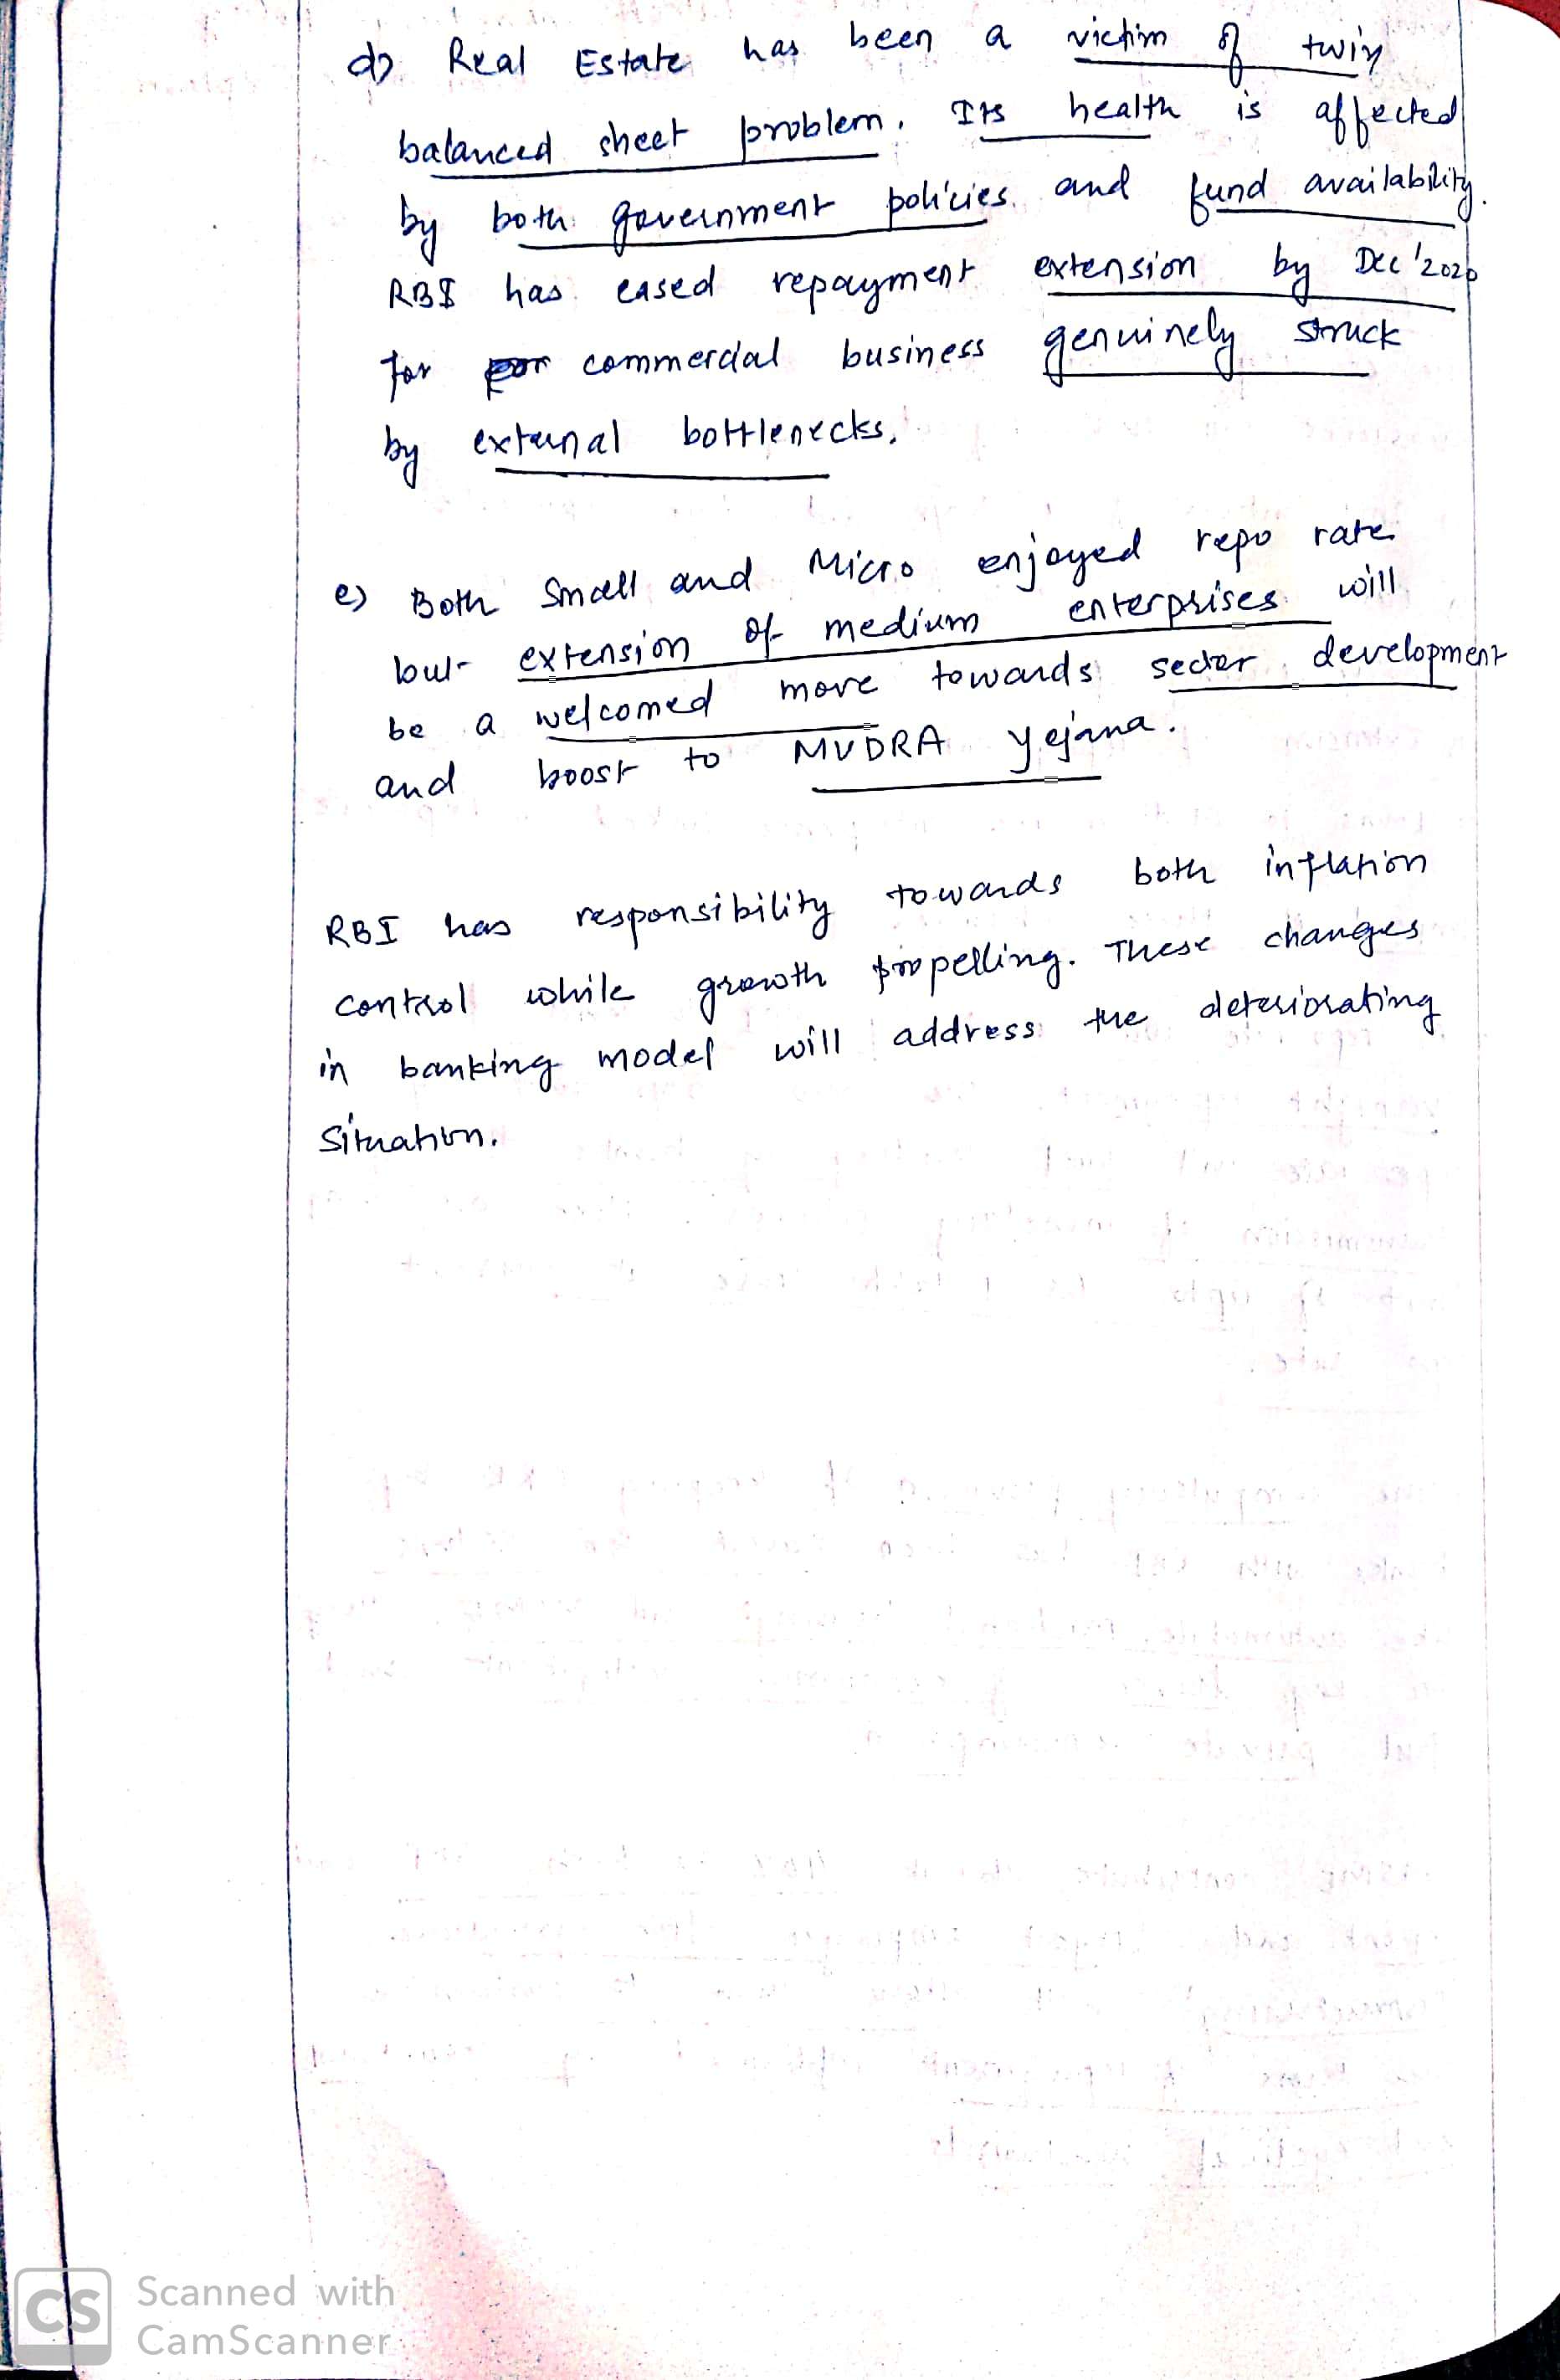 d) Real Estate has been a victim of twin
balanced sheet problem. Its health is affected
by both government policies and fund availability.
RBI has eased repayment extension by Dec '2020
for commercial business genuinely struck
by external bottlenecks.
e) Both Small and Micro enjoyed repo rate
but extension of medium enterprises will
be a welcomed move towards sector development
and boost to MUDRA Yojana.
RBI has responsibility towards both inflation
control while growth propelling. These changes
in banking model will address the deteriorating
situation.
CS Scanned with
CamScanner